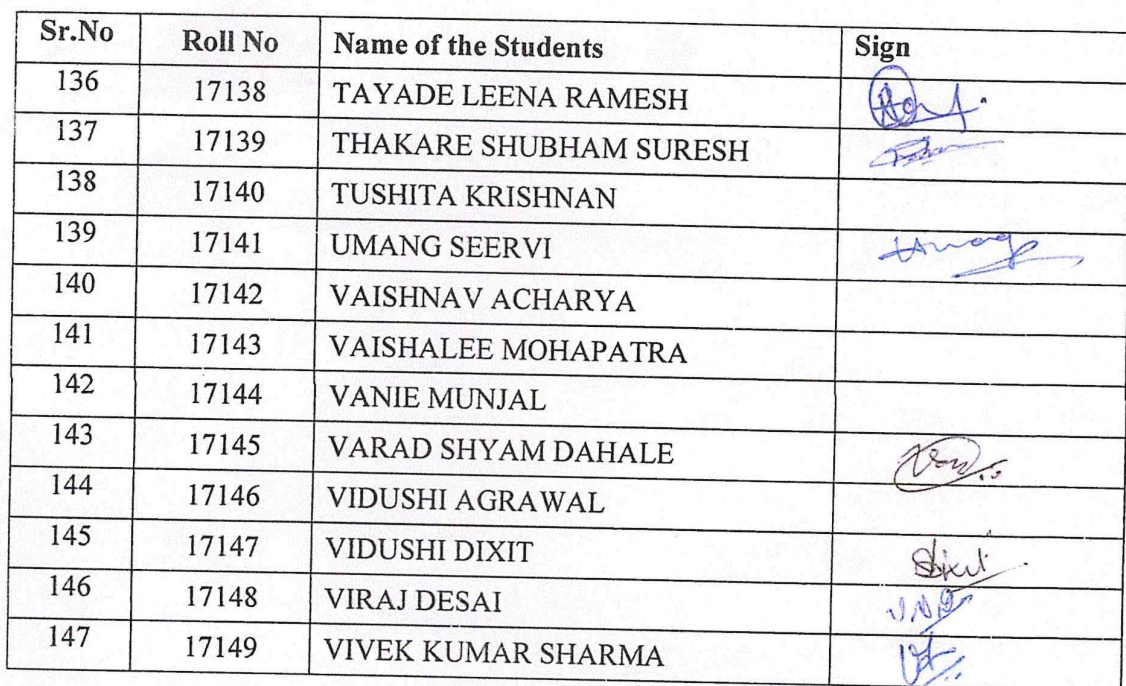 Sr.No Roll No Name of the Students Sign
136 17138 TAYADE LEENA RAMESH
137 17139 THAKARE SHUBHAM SURESH
138 17140 TUSHITA KRISHNAN
139 17141 UMANG SEERVI Umang
140 17142 VAISHNAV ACHARYA
141 17143 VAISHALEE MOHAPATRA
142 17144 VANIE MUNJAL
143 17145 VARAD SHYAM DAHALE
144 17146 VIDUSHI AGRAWAL
145 17147 VIDUSHI DIXIT
146 17148 VIRAJ DESAI
147 17149 VIVEK KUMAR SHARMA